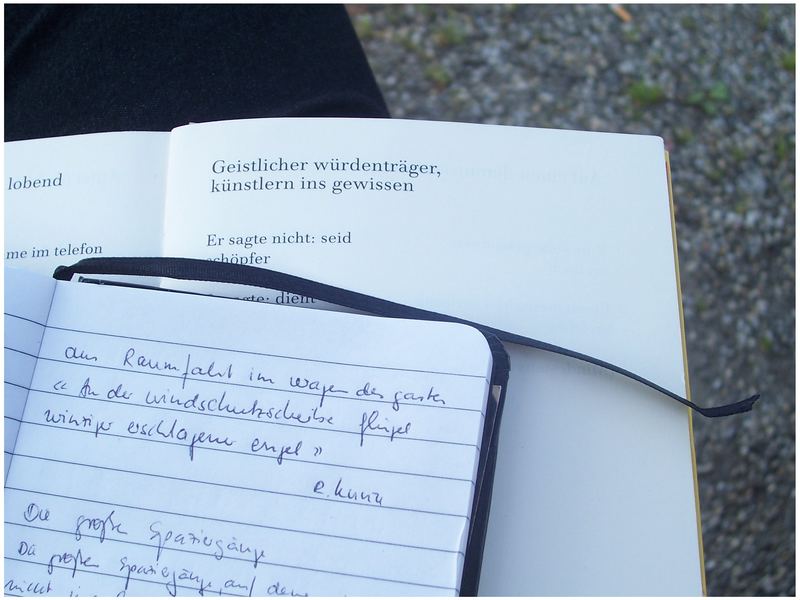 lobend
me im telefon
Geistlicher würdenträger,
künstlern ins gewissen
Er sagte nicht: seid
schöpfer
sagte: dient
aus Raumfahrt im wagen des gastes
« An der windschutzscheibe flügel
winziger erschlagener engel »
R. Kunze
Die große Spaziergänge
Die großen Spaziergänge, auf denen
nicht